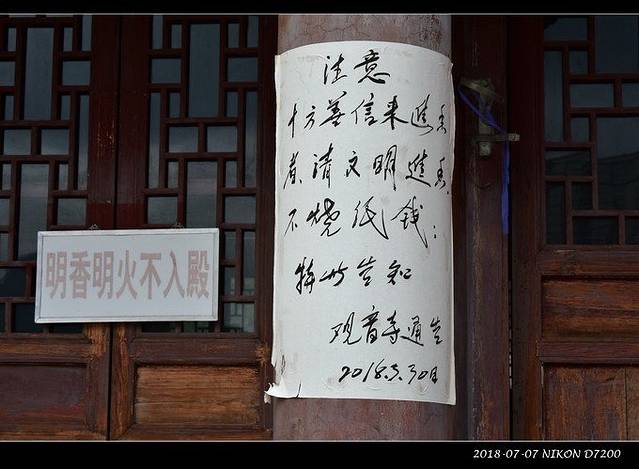 注意
十方善信来進香
者请文明進香
不燒纸钱:
特此告知
观音寺通告
2018.5.30日
明香明火不入殿
2018-07-07 NIKON D7200